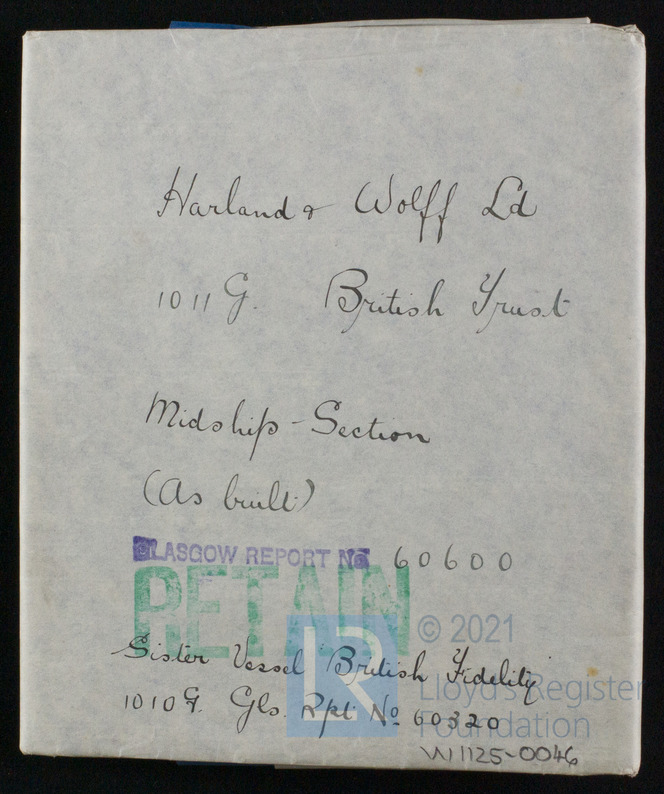 Harland & Wolff Ld
1011 G. British Trust
Midship-Section
(As built)
GLASGOW REPORT No 60600
RETAIN
LR
© 2021
Sister Vessel "British Fidelity"
Lloyd's Register
1010 G. Gls. Rpt No 60320
Foundation
W1125-0046